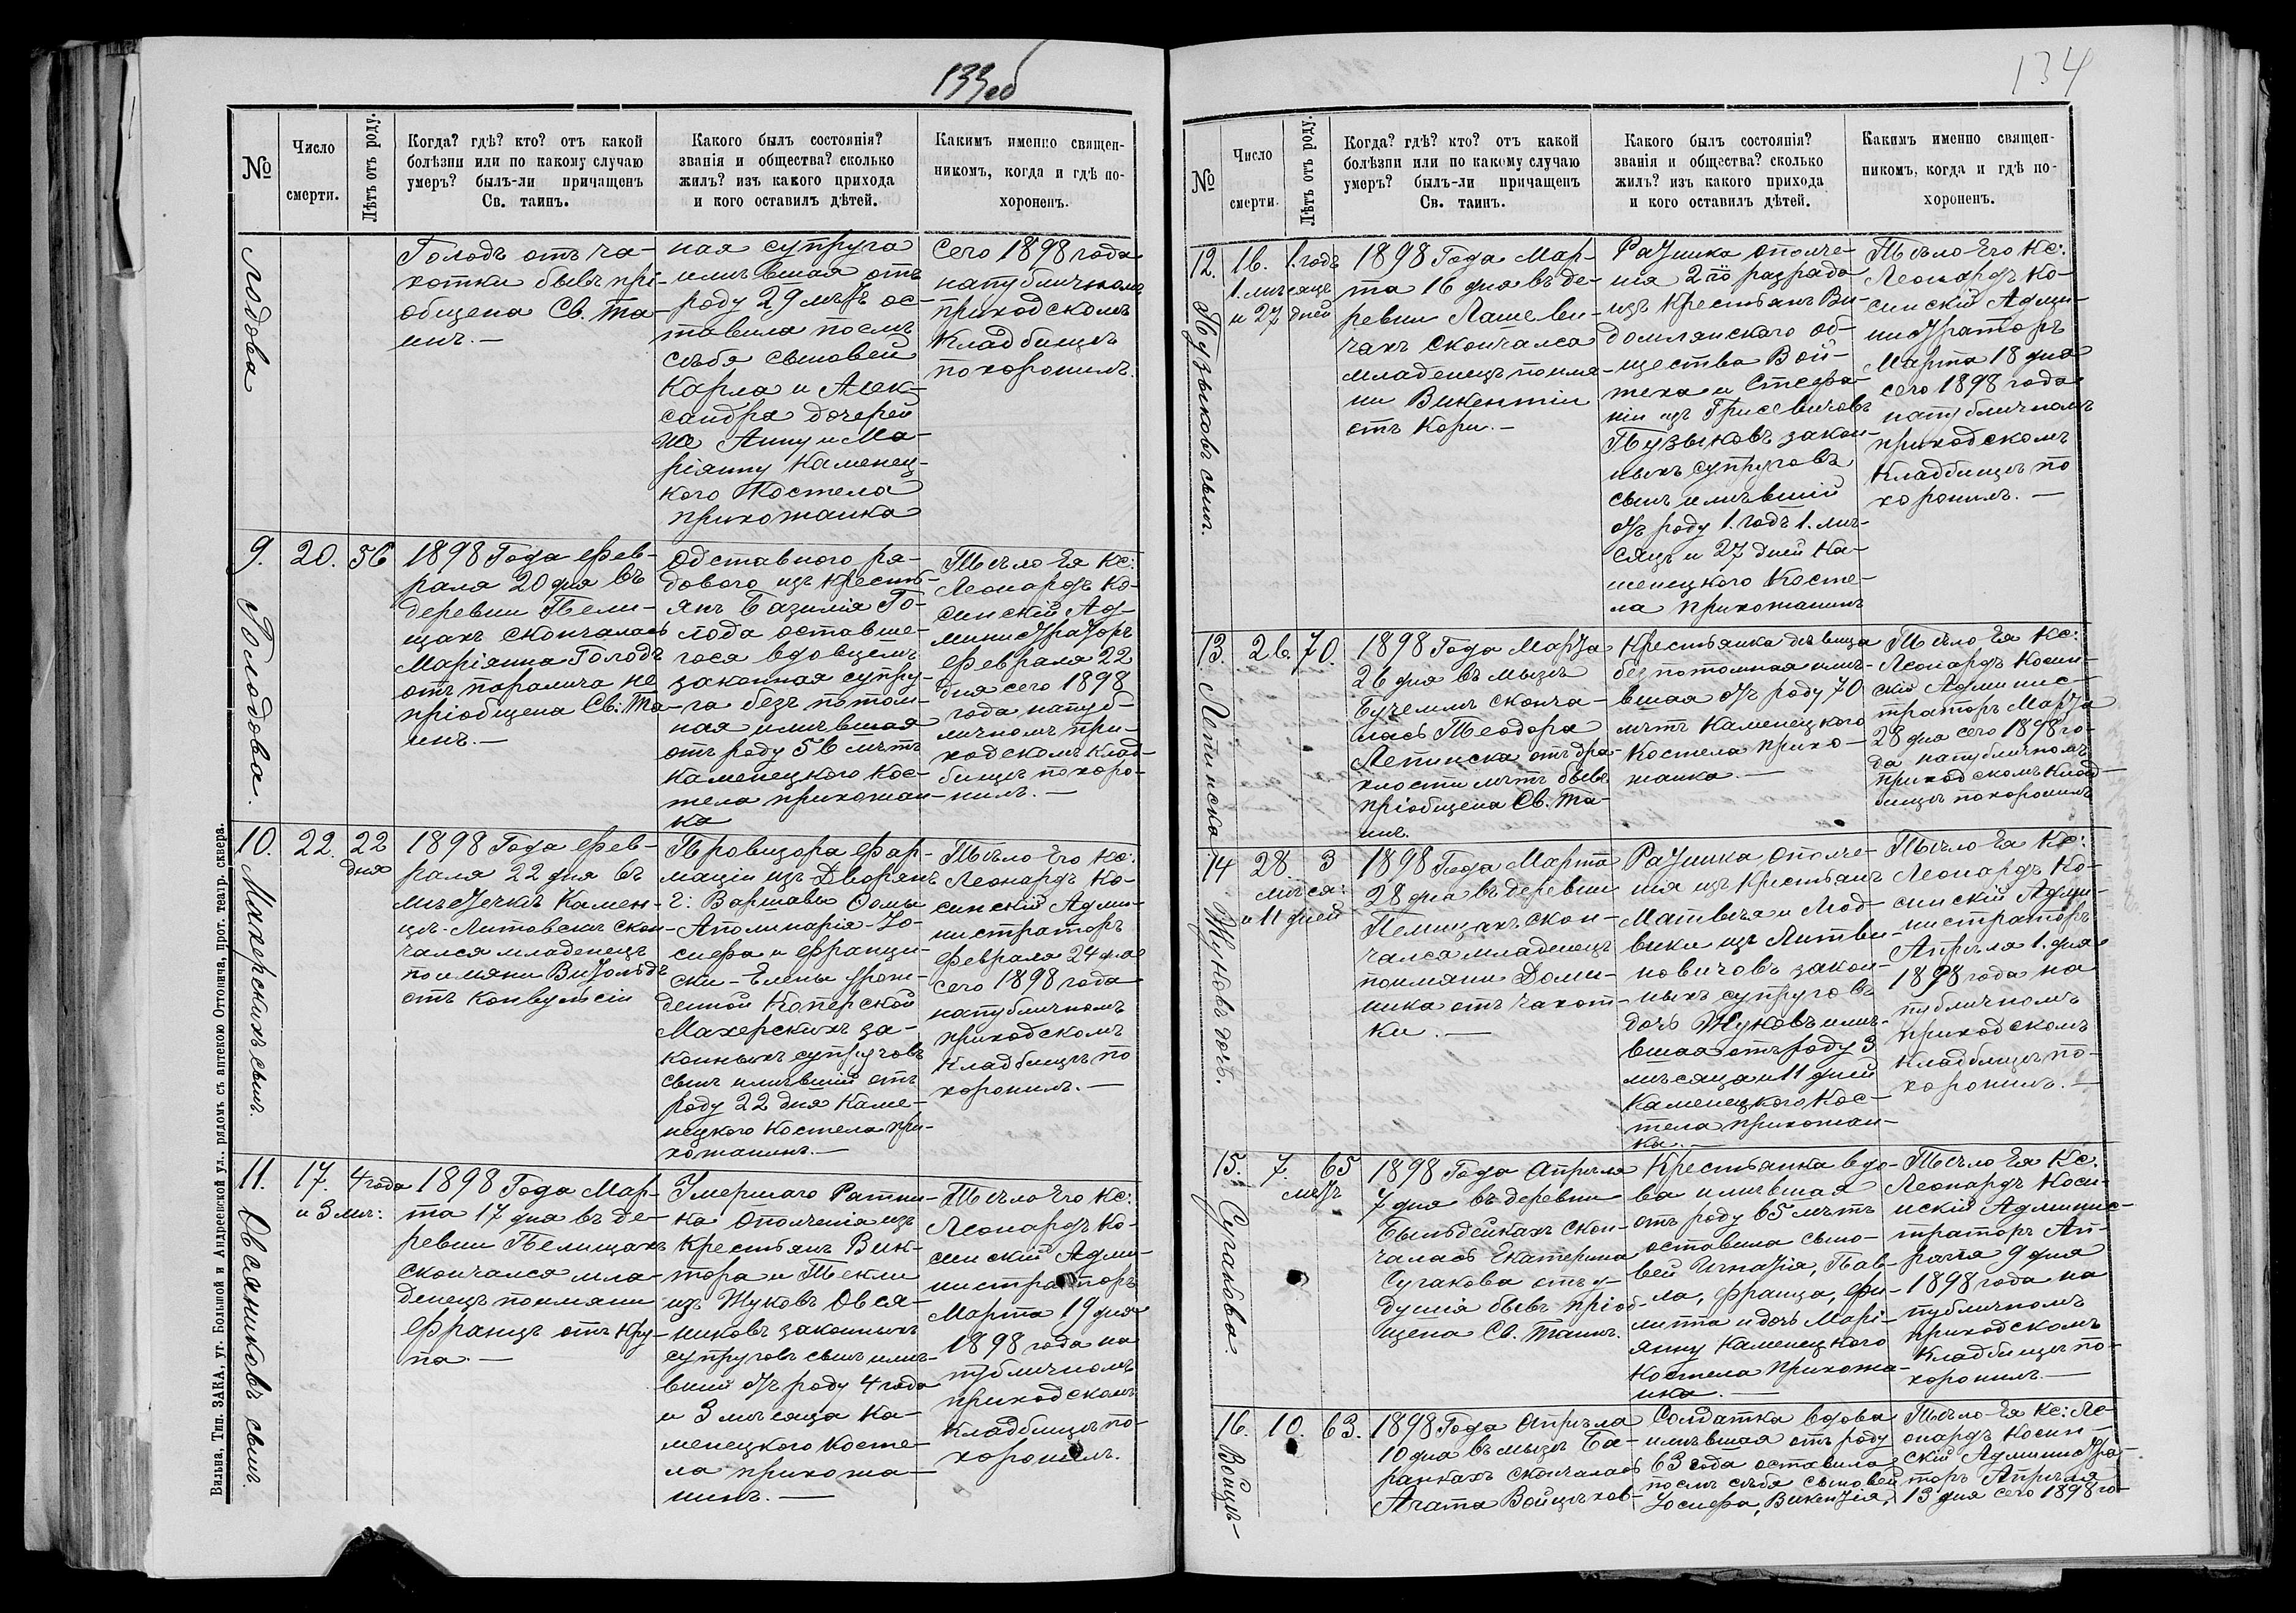 133об
№
Число
смерти.
Лѣтъ отъ роду.
Когда? гдѣ? кто? отъ какой
болѣзни или по какому случаю
умеръ? былъ-ли причащенъ
Св. таинъ.
Какого былъ состоянія?
званія и общества? сколько
жилъ? изъ какого прихода
и кого оставилъ дѣтей.
Какимъ именно священ-
никомъ, когда и гдѣ по-
хороненъ.
лодова
Голодъ отъ ча-
хотки бывъ прі-
общена Св. Та-
инъ.—
ная супруга
имѣвшая отъ
роду 29 лѣтъ ос-
тавила послѣ
себѣ сыновей
Карла и Алек-
сандра дочерей
же Анну и Ма-
ріянну Каменец-
кого Костела
прихожанка
сего 1898 года
на публичномъ
приходскомъ
кладбищѣ
похоронилъ.
9.
Голодова.
20.
56
1898 Года Фев-
раля 20 дня въ
деревни Пели-
щахъ скончалась
Маріянна Голодъ
отъ паралича не
пріобщена Св: Та-
инъ.—
Отставного ря-
дового изъ кресть-
янъ Базилія Го-
лода оставше-
гося вдовцемъ
законная супру-
га безъ потом-
ная имѣвшая
отъ роду 56 лѣтъ
Каменецкого Кос-
тела прихожан-
ка
Тѣло Ея Кс:
Леонардъ Ко-
синскій Ад-
министраторъ
Февраля 22
дня сего 1898
года на пуб-
личномъ при-
ходскомъ клад-
бищѣ похоро-
нилъ.—
10.
Махерскихъ сынъ.
22.
22
дня
1898 Года Фев-
раля 22 дня въ
мѣстечкѣ Камен-
цѣ-Литовскѣ скон-
чался младенецъ
по имяни Витольдъ
отъ конвульсіи
Провизора Фар-
маціи изъ Дворянъ
г: Варшавы Фомы
Аполинарія-Іо-
сифа и Францис-
ски-Елены урож-
денной Коперской
Махерскихъ за-
конныхъ супруговъ
сынъ имѣвшій отъ
роду 22 дня Каме-
нецкого Костела при-
хожанинъ.—
Тѣло Его Кс:
Леонардъ Ко-
синскій Адми-
нистраторъ
Февраля 24 дня
сего 1898 года
на публичномъ
приходскомъ
кладбищѣ по
хоронилъ.—
11.
Овсяниковъ сынъ.
17.
4 года
и 3 мѣ:
1898 Года Мар-
та 17 дня въ де-
ревни Пелищахъ
скончался мла-
денецъ по имяни
Францъ отъ кру-
па.—
Умершаго Ратни-
ка Ополченія изъ
Крестьянъ Вик-
тора и Текли
изъ Жуковъ Овся-
никовъ законныхъ
супруговъ сынъ имѣ-
вшій отъ роду 4 года
и 3 мѣсяца Ка-
менецкого Косте-
ла прихожа-
нинъ.—
Тѣло Его Кс:
Леонардъ Ко-
синскій Адми-
нистраторъ
Марта 19 дня
1898 года на
публичномъ
приходскомъ
кладбищѣ по-
хоронилъ.
Вильна, Тип. ЗАКА, уг. Большой и Андреевской ул., рядомъ съ аптекою Оттовича, прот. театр. сквера.
134
№
Число
смерти.
Лѣтъ отъ роду.
Когда? гдѣ? кто? отъ какой
болѣзни или по какому случаю
умеръ? былъ-ли причащенъ
Св. таинъ.
Какого былъ состоянія?
званія и общества? сколько
жилъ? изъ какого прихода
и кого оставилъ дѣтей.
Какимъ именно священ-
никомъ, когда и гдѣ по-
хороненъ.
12.
Пузыковъ сынъ.
16.
1. годъ
1. мѣсяцъ
и 27 дней
1898 Года Мар-
та 16 дня въ де-
ревни Лашеви-
чахъ скончался
младенецъ по имя-
ни Викентій
отъ Кори.—
Ратника ополче-
нія 2го разряда
изъ Крестьянъ Ви-
домлянского об-
щества Вой-
теха и Стефа-
ніи изъ Грисевичовъ
Пузыковъ закон-
ныхъ супруговъ
сынъ имѣвшій
отъ роду 1. годъ 1. мѣ-
сяцъ и 27 дней Ка-
менецкого Косте-
ла прихожанинъ
Тѣло Его Кс:
Леонардъ Ко-
синскій Адми-
нистраторъ
Марта 18 дня
сего 1898 года
на публичномъ
приходскомъ
Кладбищѣ по
хоронилъ.—
13.
Лепинска
26.
70.
1898 Года Марта
26 дня въ мызѣ
Бучемлѣ сконча-
лась Теодора
Лепинска отъ дря-
хлости лѣтъ бывъ
пріобщена Св. Та-
инъ.
Крестьянка дѣвица
безпотомная имѣ-
вшая отъ роду 70
лѣтъ Каменецкого
Костела прихо-
жанка.—
Тѣло Ея Кс:
Леонардъ Косин-
скій Админис-
траторъ Марта
28 дня сего 1898 го-
да на публичномъ
приходскомъ Клад-
бищѣ похоронилъ
14
Жуковъ дочь.
28.
3
мѣся:
и 11 дней
1898 Года Марта
28 дня въ деревни
Пелищахъ скон-
чалса младенецъ
по имяни Доми-
ника отъ чахот-
ки.—
Ратника Ополче-
нія изъ Крестьянъ
Матвѣя и Люд-
вики изъ Литви-
новичовъ закон-
ныхъ супруговъ
дочь Жуковъ имѣ-
вшая отъ роду 3
мѣсяца и 11 дней
Каменецкого Кос-
тела прихожан-
ка.—
Тѣло Ея Кс:
Леонардъ Ко-
синскій Адми-
нистраторъ
Апрѣля 1. дня
1898 года на
публичномъ
приходскомъ
Кладбищѣ по-
хоронилъ.—
15.
Сугакова.
7.
65
лѣтъ
1898 Года Апрѣля
7 дня въ деревни
Быльдейкахъ скон-
чалась Екатерина
Сугакова отъ у-
душія бывъ пріоб-
щена Св. Таинъ.
Крестьянка вдо-
ва имѣвшая
отъ роду 65 лѣтъ
оставила сыно-
вей Игнатія, Пав-
ла, Франца, Фи-
липпа и дочь Марі-
янну Каменецкого
Костела Прихожа-
нка.—
Тѣло Ея Кс.
Леонардъ Коси-
нскій Админис-
траторъ Ап-
рѣля 9 дня
1898 года на
публичномъ
приходскомъ
Кладбищѣ по-
хоронилъ.—
16.
Войцѣ-
10.
63.
1898 Года Апрѣля
10 дня въ мызѣ Ба-
ранкахъ скончалась
Агата Войцѣхов-
Солдатка вдова
имѣвшая отъ роду
63 года оставила
послѣ себѣ сыновей
Іосифа, Викентія,
Тѣло Ея Кс: Ле-
онардъ Косин-
скій Администра-
торъ Апрѣля
13 дня сего 1898 го-